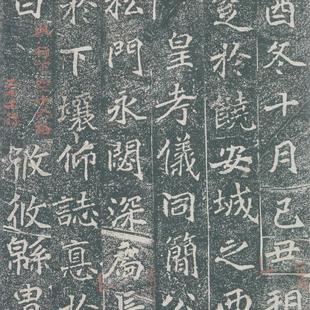 酉冬十月己丑
窆於饒安城之西
皇考儀同簡公
松門永閟深扃長
於下壤仰誌悳於
攸攸緜胄